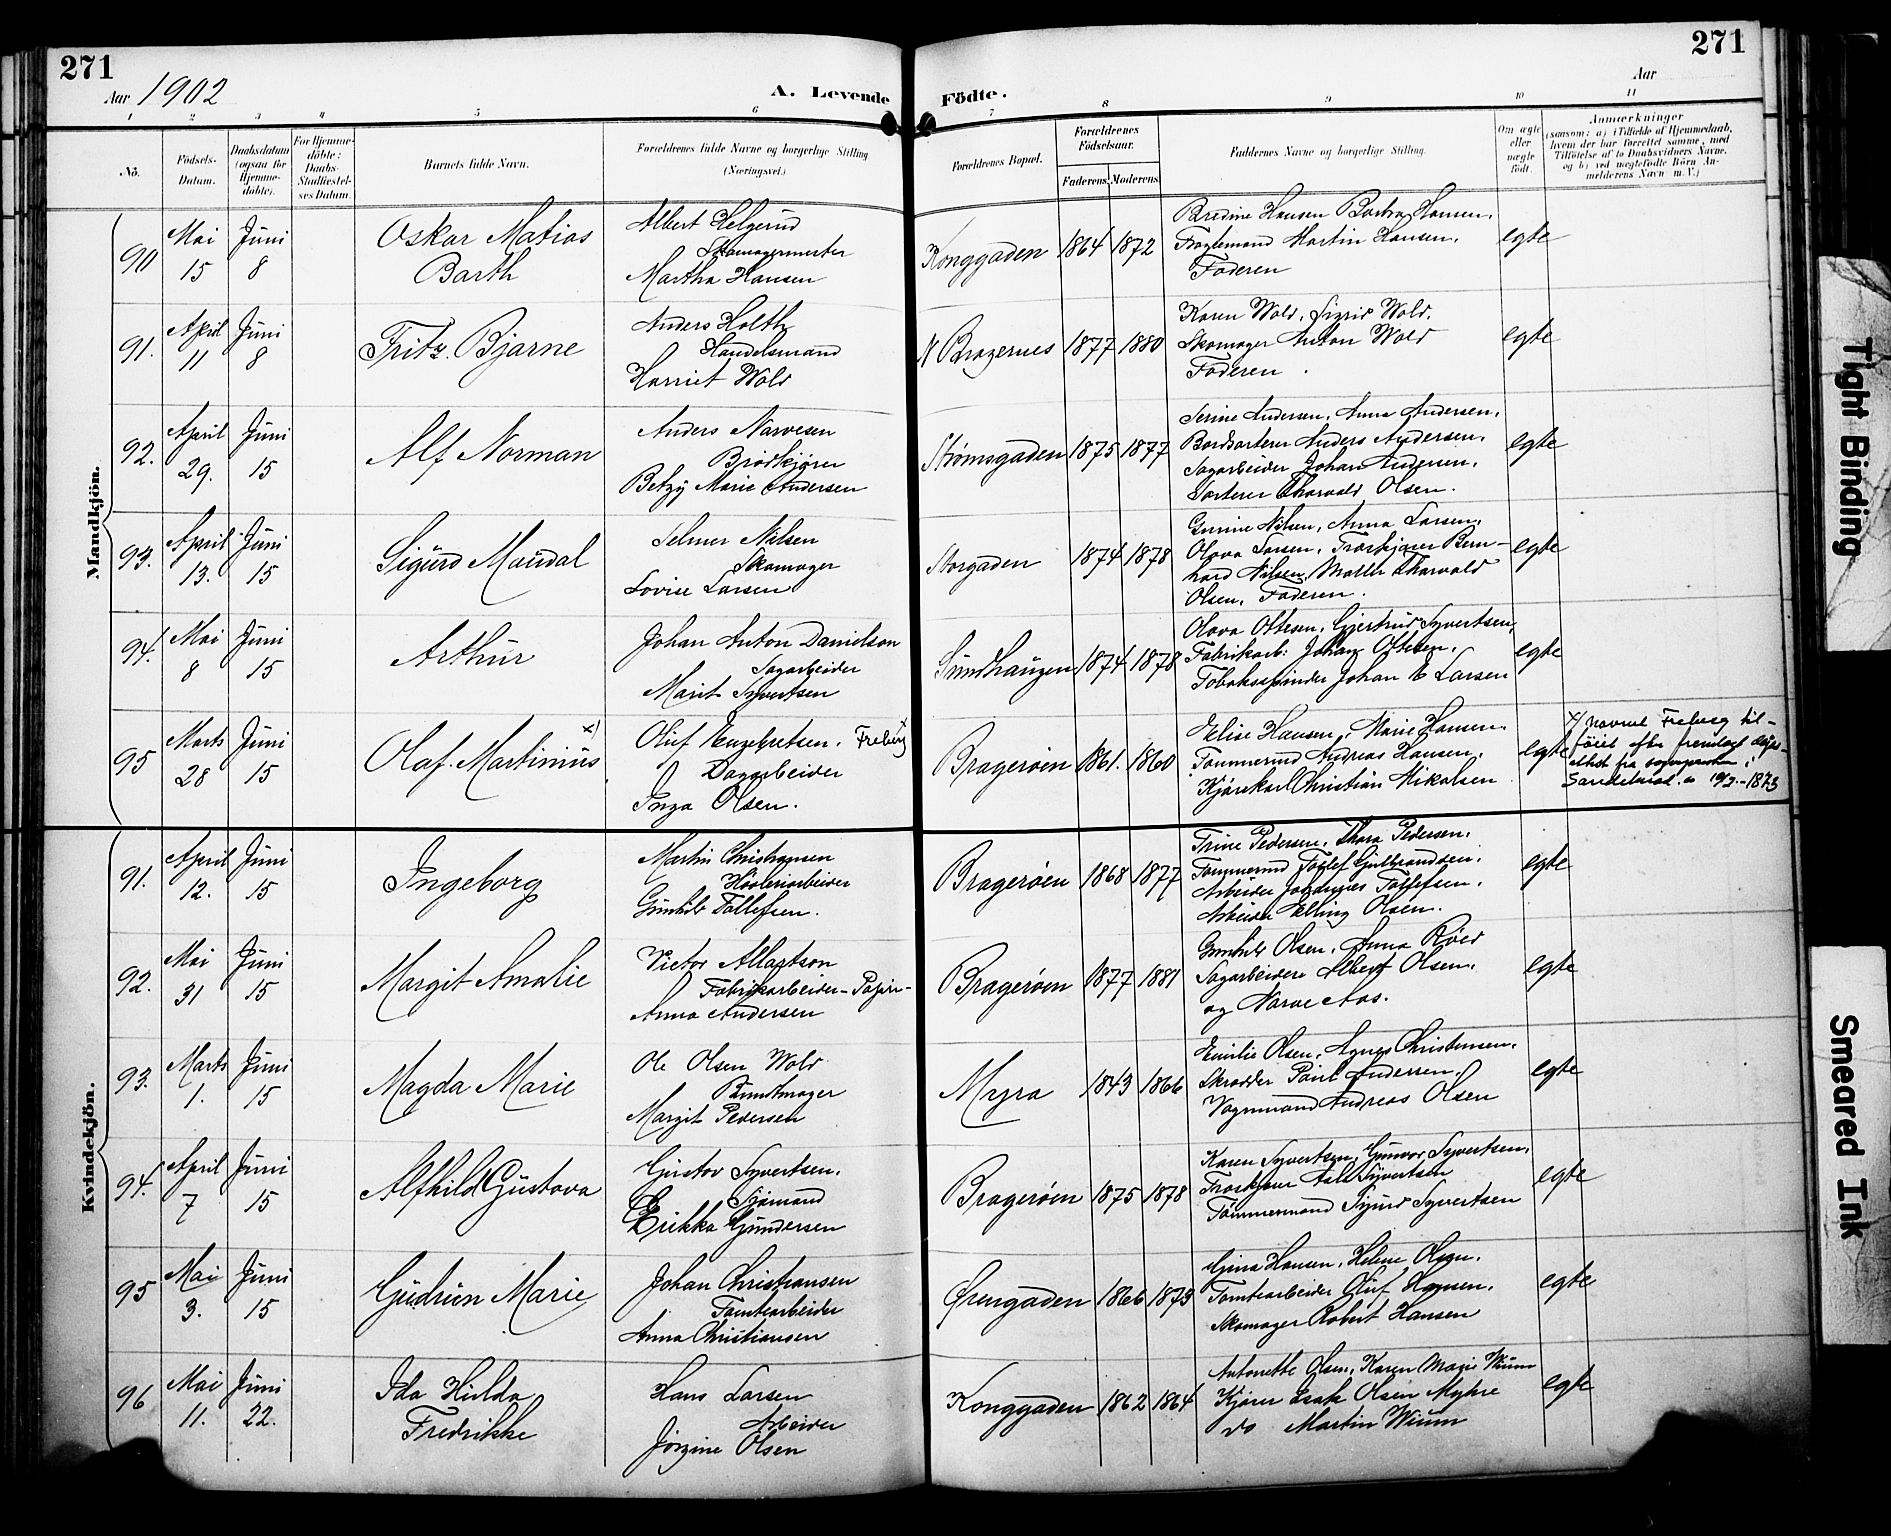 271
271
Aar 1902
A. Levende
Födte.
Aar
1 2 3 4 5 6 7 8 9 10 11
No.
Födsels-
Datum.
Daabsdatum
(ogsaa for
Hjemme-
döbte).
For Hjemme-
döbte:
Daabs-
Stadfæstel-
ses Datum.
Barnets fulde Navn.
Forældrenes fulde Navne og borgerlige Stilling
(Næringsvei.)
Forældrenes Bopæl.
Forældrenes
Födselsaar.
Faderens
Moderens
Faddernes Navne og borgerlige Stilling.
Om ægte
eller
uægte
født.
Anmærkninger
(saasom: a) i Tilfælde af Hjemmedaab,
hvem der har forrettet samme, med
Tilföielse af to Daabsvidners Navne,
og b) ved uægtefödte Börn An-
melderens Navn m. V.)
Mandkjön.
90
Mai
15
Juni
8
Oskar Matias
Barth
Albert Helgerud
Skomagermester
Martha Hansen
Konggaden
1864
1872
Bredine Hansen Barbra Hansen.
Fragtemand Martin Hansen.
Faderen
egte
91.
April
11
Juni
8
Fritz Bjarne
Anders Holth
Handelsmand
Harriet Wold
N Bragernes
1877
1880
Karen Wold, Sigrid Wold,
Skomager Anton Wold
Faderen.
egte
92.
April
29.
Juni
15
Alf Norman
Anders Narvesen
Brødkjører
Betzy Marie Andersen
Strømsgaden
1875
1877
Serine Andersen, Anna Andersen,
Bordsorterer Anders Andersen,
Sagarbeider Johan Andersen,
Sorterer Thorvald Olsen.
egte
93.
April
13.
Juni
15
Sigurd Maudal
Selmer Nilsen
Skomager
Lovise Larsen
Storgaden
1874
1878
Gurine Nilsen, Anna Larsen,
Olava Larsen, Traskjører Bern-
hard Nilsen, Møller Thorvald
Olsen, Faderen.
egte
94.
Mai
8
Juni
15
Arthur
Johan Anton Danielson
Sagarbeider
Marit Syvertsen
Sundhaugen
1874
1878
Olava Ottesen, Gjertrud Syvertsen,
Fabrikarb: Johan Ottesen,
Tobaksspinder Johan E Larsen
egte
95
Marts
28
Juni
15
Olaf Martinius x)
Oluf Engebretsen. Freberg
Dagarbeider
Inga Olsen.
Bragerøen
1861.
1860
Elise Hansen, Marie Hansen
Tømmermd Andreas Hansen,
Kjørekarl Christian Mikalsen
egte
x/ Navnet Freberg til-
føiet efter fremlagt
attest fra sognepresten i
Sandeherad
Kvindekjön.
91.
April
12.
Juni
15
Ingeborg
Martin Christiansen
Høvleriarbeider
Gunhild Tollefsen.
Bragerøen
1868
1877
Trine Pedersen, Thora Pedersen,
Tømmermd Tollef Gulbrandsen,
Arbeider Johannes Tollefsen,
Arbeider Elling Olsen.
egte
92.
Mai
31
Juni
15
Margit Amalie
Victor Allartson
Fabrikarbeider-Papir-
Anna Andersen
Bragerøen
1877
1881
Gunhild Olsen, Anna Röed
Sagarbeidere Albert Olsen,
og Narve Aas.
egte
93.
Marts
1.
Juni
15
Magda Marie
Ole Olsen Wold
Buntmager
Margit Pedersen
Myra
1843
1866
Emilie Olsen, Agnes Christensen,
Skrædder Paul Andersen,
Vognmand Andreas Olsen
egte
94.
April
7
Juni
15
Alfhild Gustava
Gustav Syvertsen.
Sjømand
Erikka Gundersen
Bragerøen
1875
1878
Karen Syvertsen, Gunvor Syvertsen,
Traskjører Adle Syvertsen
Tømmermand Sigurd Syvertsen
egte
95
Mai
3.
Juni
15
Gudrun Marie
Johan Christiansen
Tomtearbeider
Anna Christiansen
Ørengaden
1866
1873
Gina Hansen, Helene Olsen,
Tomtearbeider Oluf Hansen,
Skomager Robert Hansen
egte
96
Mai
11.
Juni
22.
Ida Hulda
Fredrikke
Hans Larsen
Arbeider
Jørgine Olsen
Konggaden
1862
1864
Antonette Olsen, Karen Marie Wium
Kjører Esak Olsen Myhre
do Martin Wium
egte
Tight Binding
Smeared Ink